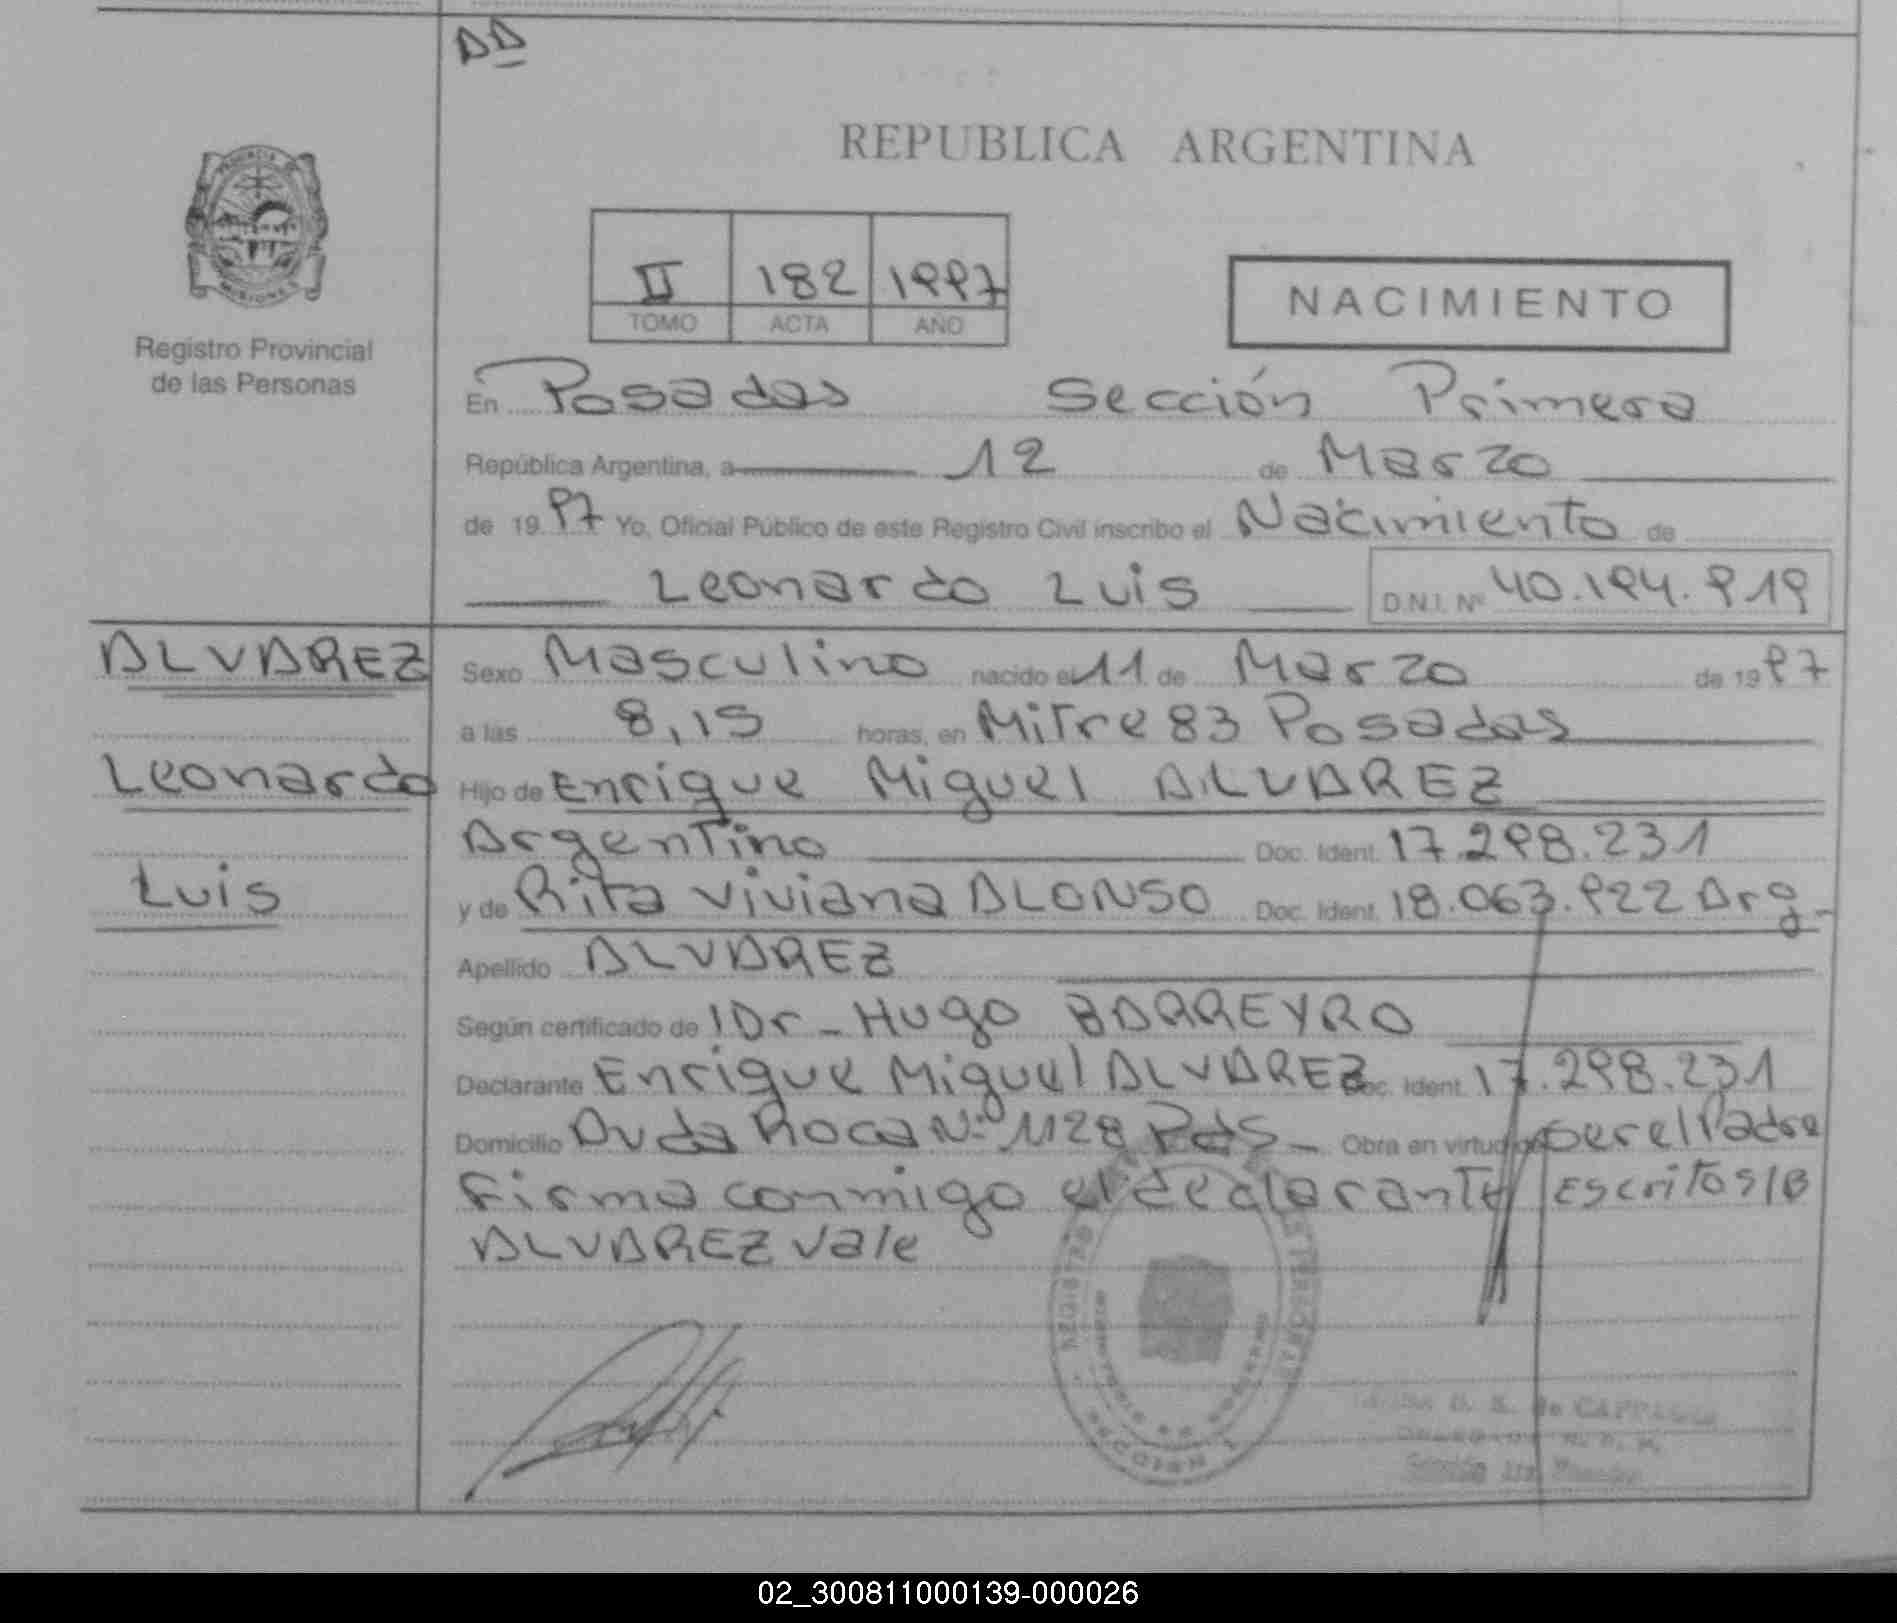 DD
REPUBLICA ARGENTINA
II 182 1997
TOMO ACTA AÑO
NACIMIENTO
MISIONES
Registro Provincial
de las Personas
En Posadas Sección Primera
República Argentina, a 12 de Marzo
de 1997 Yo, Oficial Público de este Registro Civil inscribo el Nacimiento de
Leonardo Luis D.N.I. Nº 40.194.919
ALVAREZ
Leonardo
Luis
Sexo Masculino nacido el 11 de Marzo de 1997
a las 8,15 horas, en Mitre 83 Posadas
Hijo de Enrique Miguel ALVAREZ
Argentino Doc. Ident. 17.298.231
y de Rita Viviana ALONSO Doc. Ident. 18.063.922 Arg.
Apellido ALVAREZ
Según certificado de Dr. Hugo BARREYRO
Declarante Enrique Miguel ALVAREZ Doc. Ident. 17.298.231
Domicilio Avda Roca Nº 1128 Pdas Obra en virtud de ser el Padre
Firma conmigo el declarante Escrito S/B
ALVAREZ Vale
02_300811000139-000026